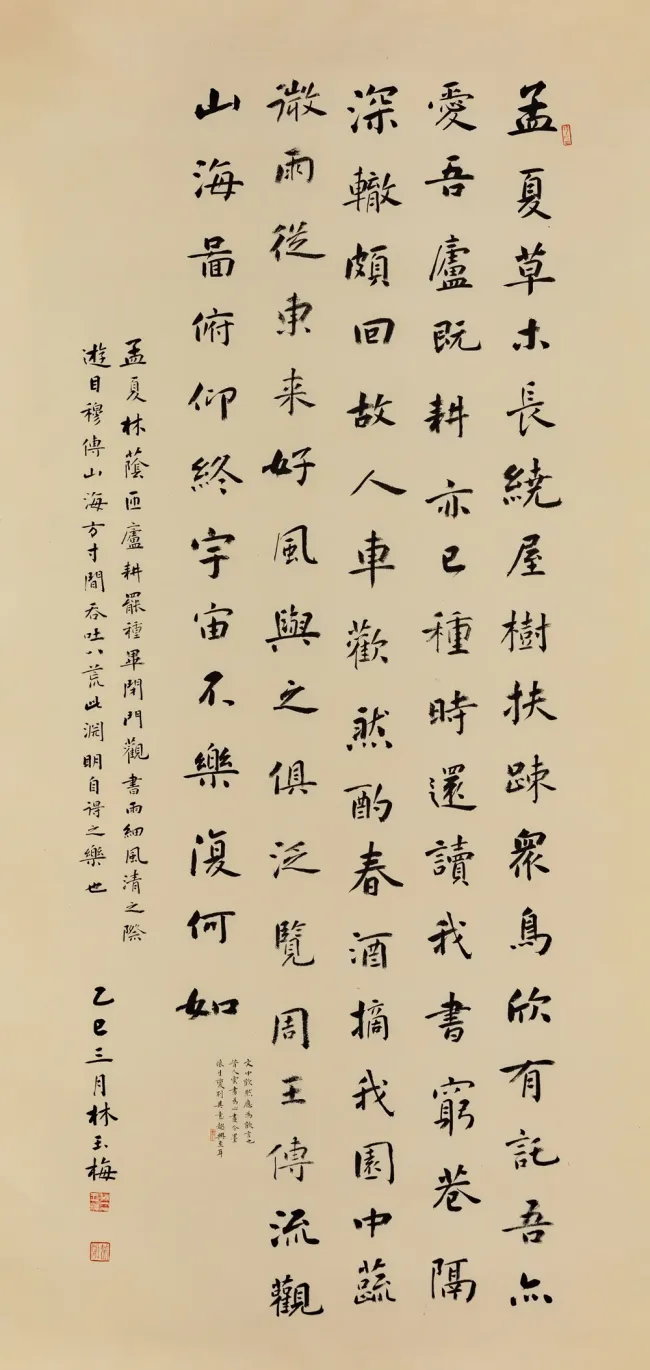 孟夏草木長繞屋樹扶踈眾鳥欣有託吾亦
愛吾廬既耕亦已種時還讀我書窮巷隔
深轍頗回故人車歡然酌春酒摘我園中蔬
微雨從東来好風與之俱泛覽周王傳流觀
山海圖俯仰終宇宙不樂復何如
文中歡然應為歡言也
孟夏林蔭匝廬耕罷種畢閉門觀書雨細風清之際
遊目穆傳山海方寸間吞吐八荒此淵明自得之樂也
乙巳三月林玉梅